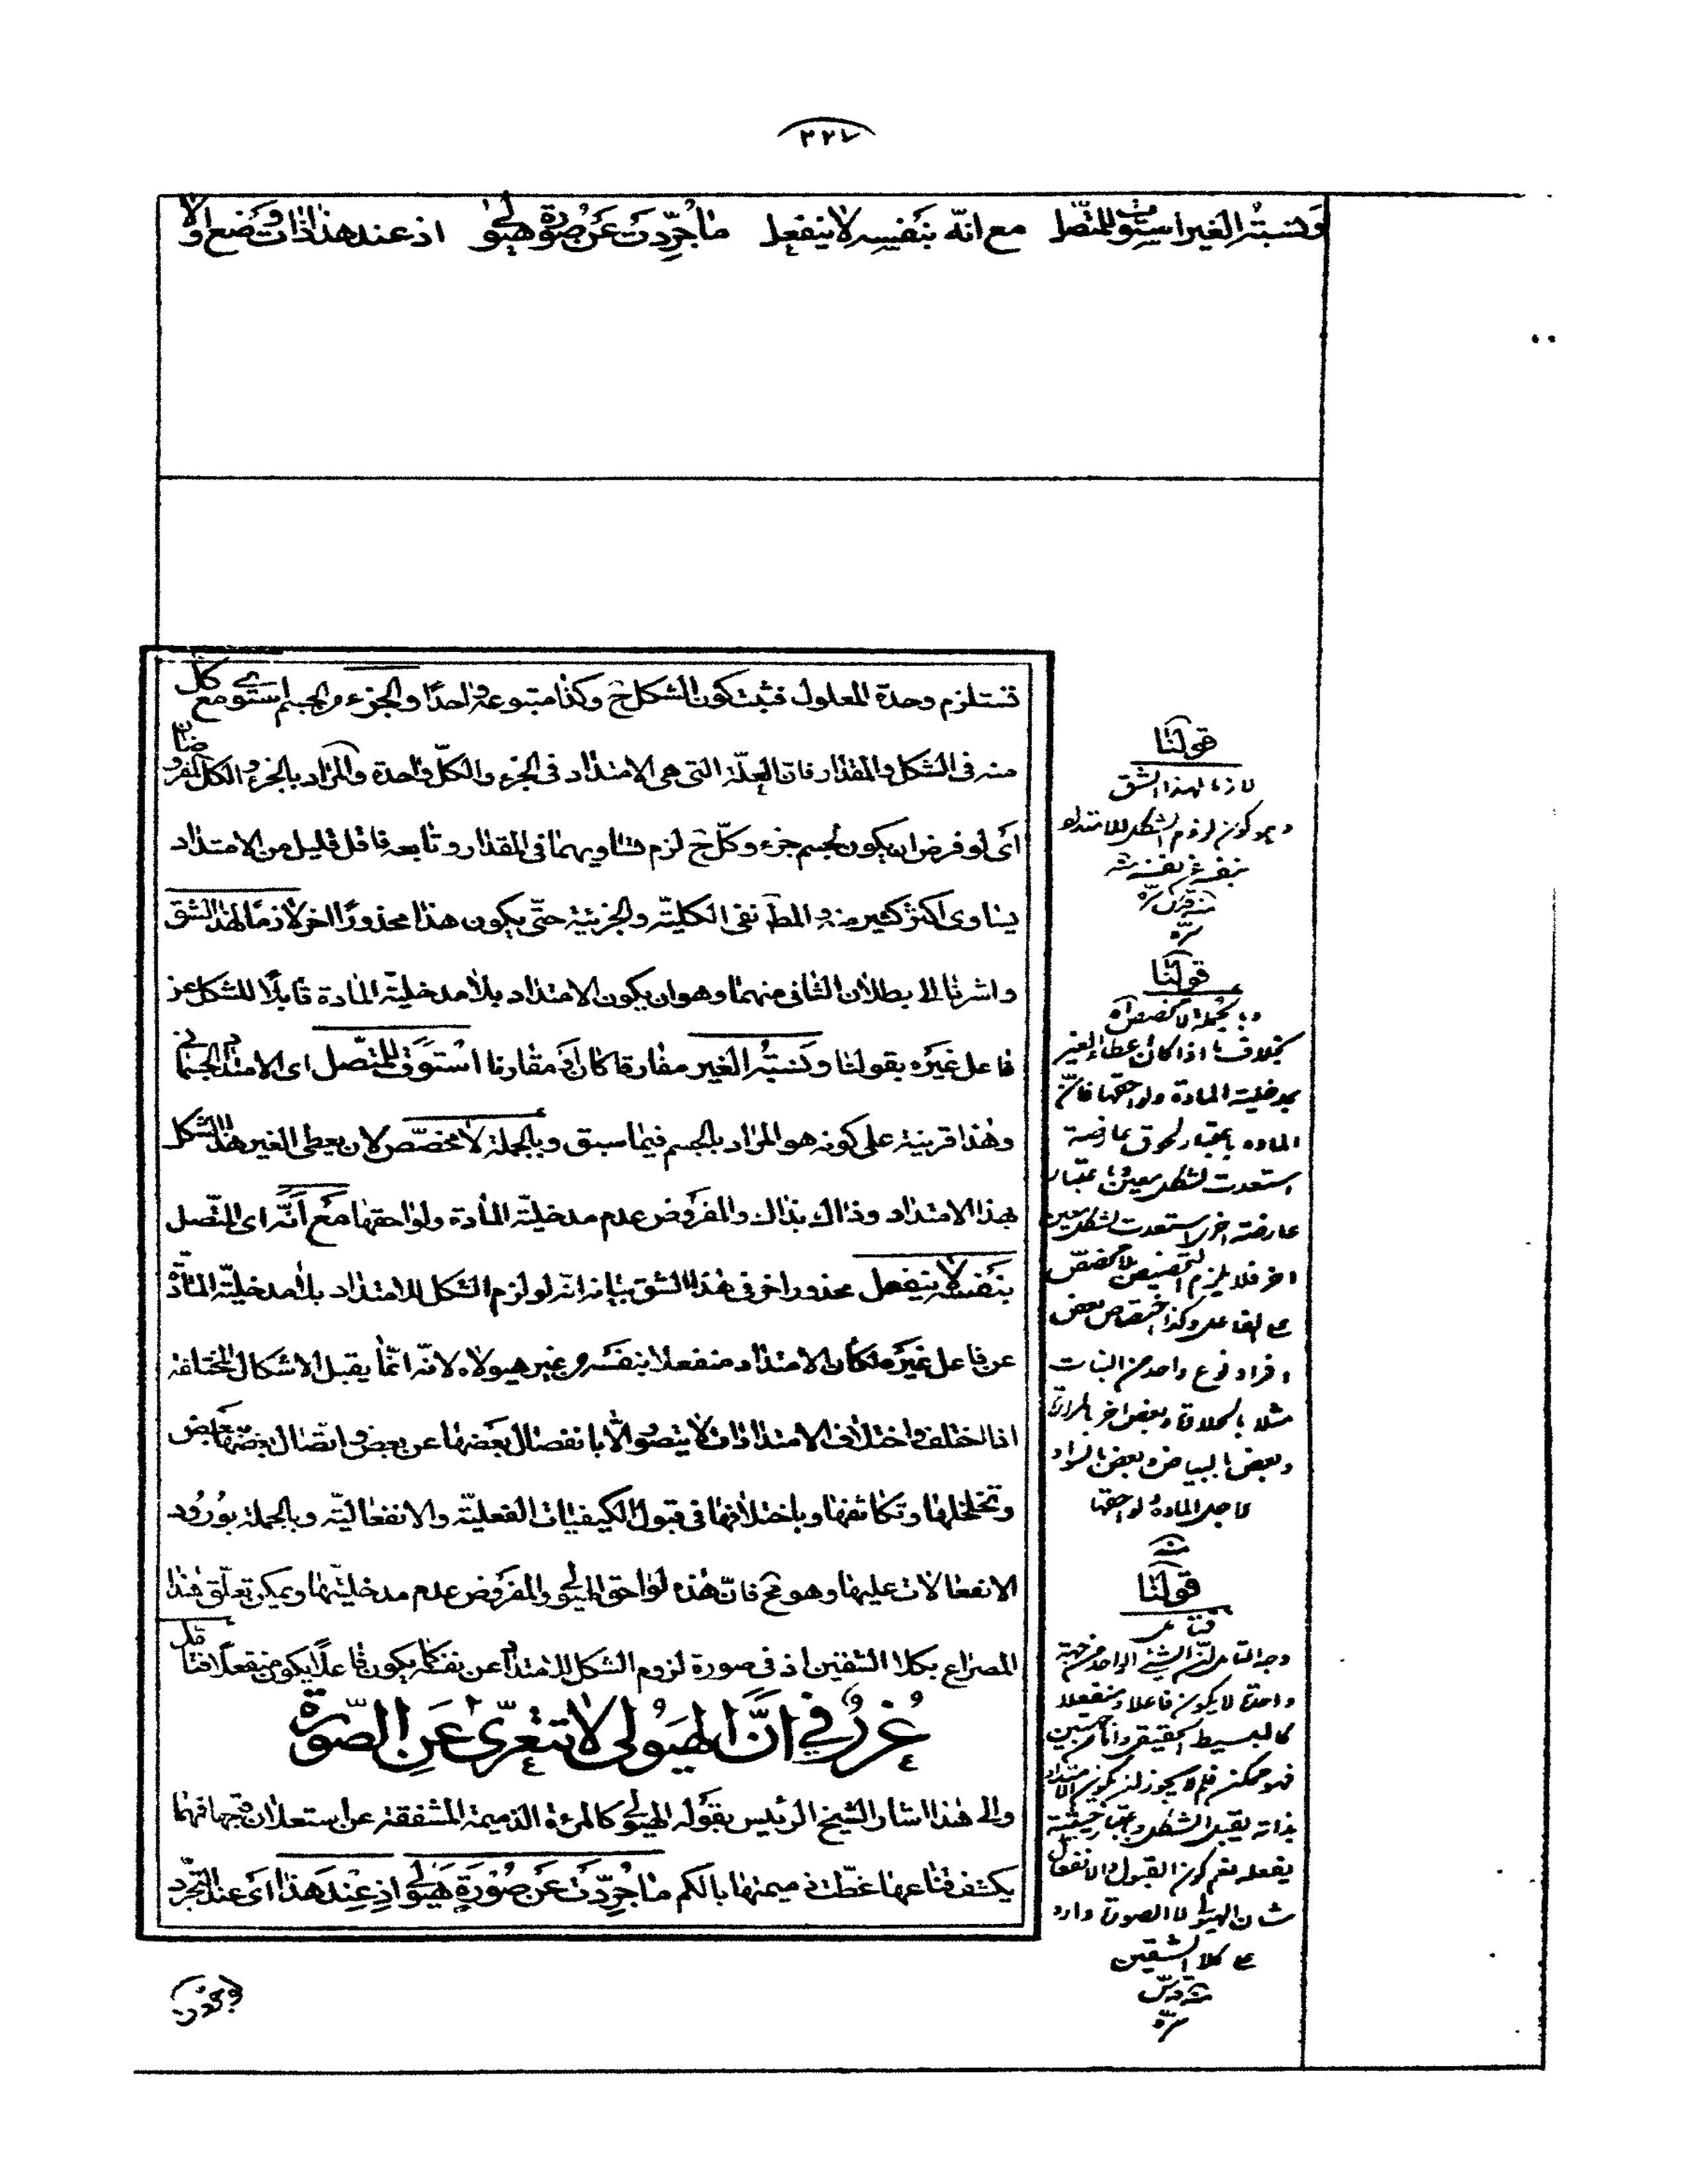 ٢٢٧
ونسبة الغير استوت للمتصل مع انه بنفسه لا ينفعل ما جردت عن صورة هيولى اذ عند هذا ذات وضع اولا
تستلزم وحدة المعلول فثبت كون الشكل ح وكذا متبوعه واحدا والجزء من الجسم استوى مع كل
منه فى الشكل والمقدار فان العلة التى هى الامتداد فى الجزء والكل واحدة والمراد بالجزء والكل المفروضان
اى لو فرض ان يكون لجسم جزء وكل ح لزم تساويهما فى المقدار وتابعه فاقل قليل من الامتداد
يساوى اكثر كثير منه والمط نفى الكلية والجزئية حتى يكون هذا محذورا اخر لازما لهذا الشق
واشرنا الى بطلان الثانى منهما وهو ان يكون الامتداد بلا مدخلية المادة قابلا للشكل عن
فاعل غيره بقولنا ونسبة الغير مفارقا كان او مقارنا استوت للمتصل اى الامتداد الجسمانى
وهذا قرينة على كونه هو المراد بالجسم فيما سبق وبالجملة لا مخصص لان يعطى الغير هذا الشكل
بهذا الامتداد وذاك بذاك والمفروض عدم مدخلية المادة ولواحقها مع انه اى المتصل
بنفسه لا ينفعل محذور اخر فى هذا الشق بيانه انه لو لزم الشكل للامتداد بلا مدخلية المادة
عن فاعل غيره لكان الامتداد منفعلا بنفسه من غير هيولاه لانه انما يقبل الاشكال المختلفة
اذا اختلف واختلاف الامتدادات لا يتصور الا بانفصال بعضها عن بعض واتصال بعضها ببعض
وتخلخلها وتكاثفها وباختلافها فى قبول الكيفيات الفعلية والانفعالية وبالجملة بورود
الانفعالات عليها وهو مح فان هذه لواحق الهيولى والمفروض عدم مدخليتها ويمكن تعلق هذا
المصراع بكلا الشقين اذ فى صورة لزوم الشكل للامتداد عن نفسه كما يكون فاعلا يكون منفعلا فتأمل
غرر فى ان الهيولى لا تتعرى عن الصورة
والى هذا اشار الشيخ الرئيس بقوله الهيولى كالمرءة الذميمة المشفقة عن استعلان قبحها فمهما
يكشف قناعها غطت ذميمتها بالكم ما جردت عن صورة هيولى اذ عند هذا اى عند التجرد
قولنا
لازما لهذا الشق
وهو كون لزوم الشكل للامتداد
بنفسه عن نفسه
منه قدس سره
قولنا
وبالجملة لا مخصص اه
بخلاف ما اذا كان عطاء الغير
بمدخلية المادة ولواحقها فان
المادة باعتبار لحوق عارضة
استعدت لشكل معين وباعتبار
عارضة اخرى استعدت لشكل معين
اخر فلا يلزم التخصيص بلا مخصص
على الفاعل وكذا اختصاص بعض
افراد نوع واحد من النبات
مثلا بالحلاوة وبعض اخر بالمرارة
وبعض بالبياض وبعض بالسواد
لاجل المادة ولواحقها
منه
قولنا
فتأمل
وجه التأمل ان الشىء الواحد من جهة
واحدة لا يكون فاعلا ومنفعلا
كالبسيط الحقيقى واما من جهتين
فهو ممكن فلم لا يجوز ان يكون الامتداد
بذاته يقبل الشكل وباعتبار حيثية
يفعله نعم كون القبول والانفعال
شان الهيولى لا الصورة وارد
على كلا الشقين
منه قدس
سره